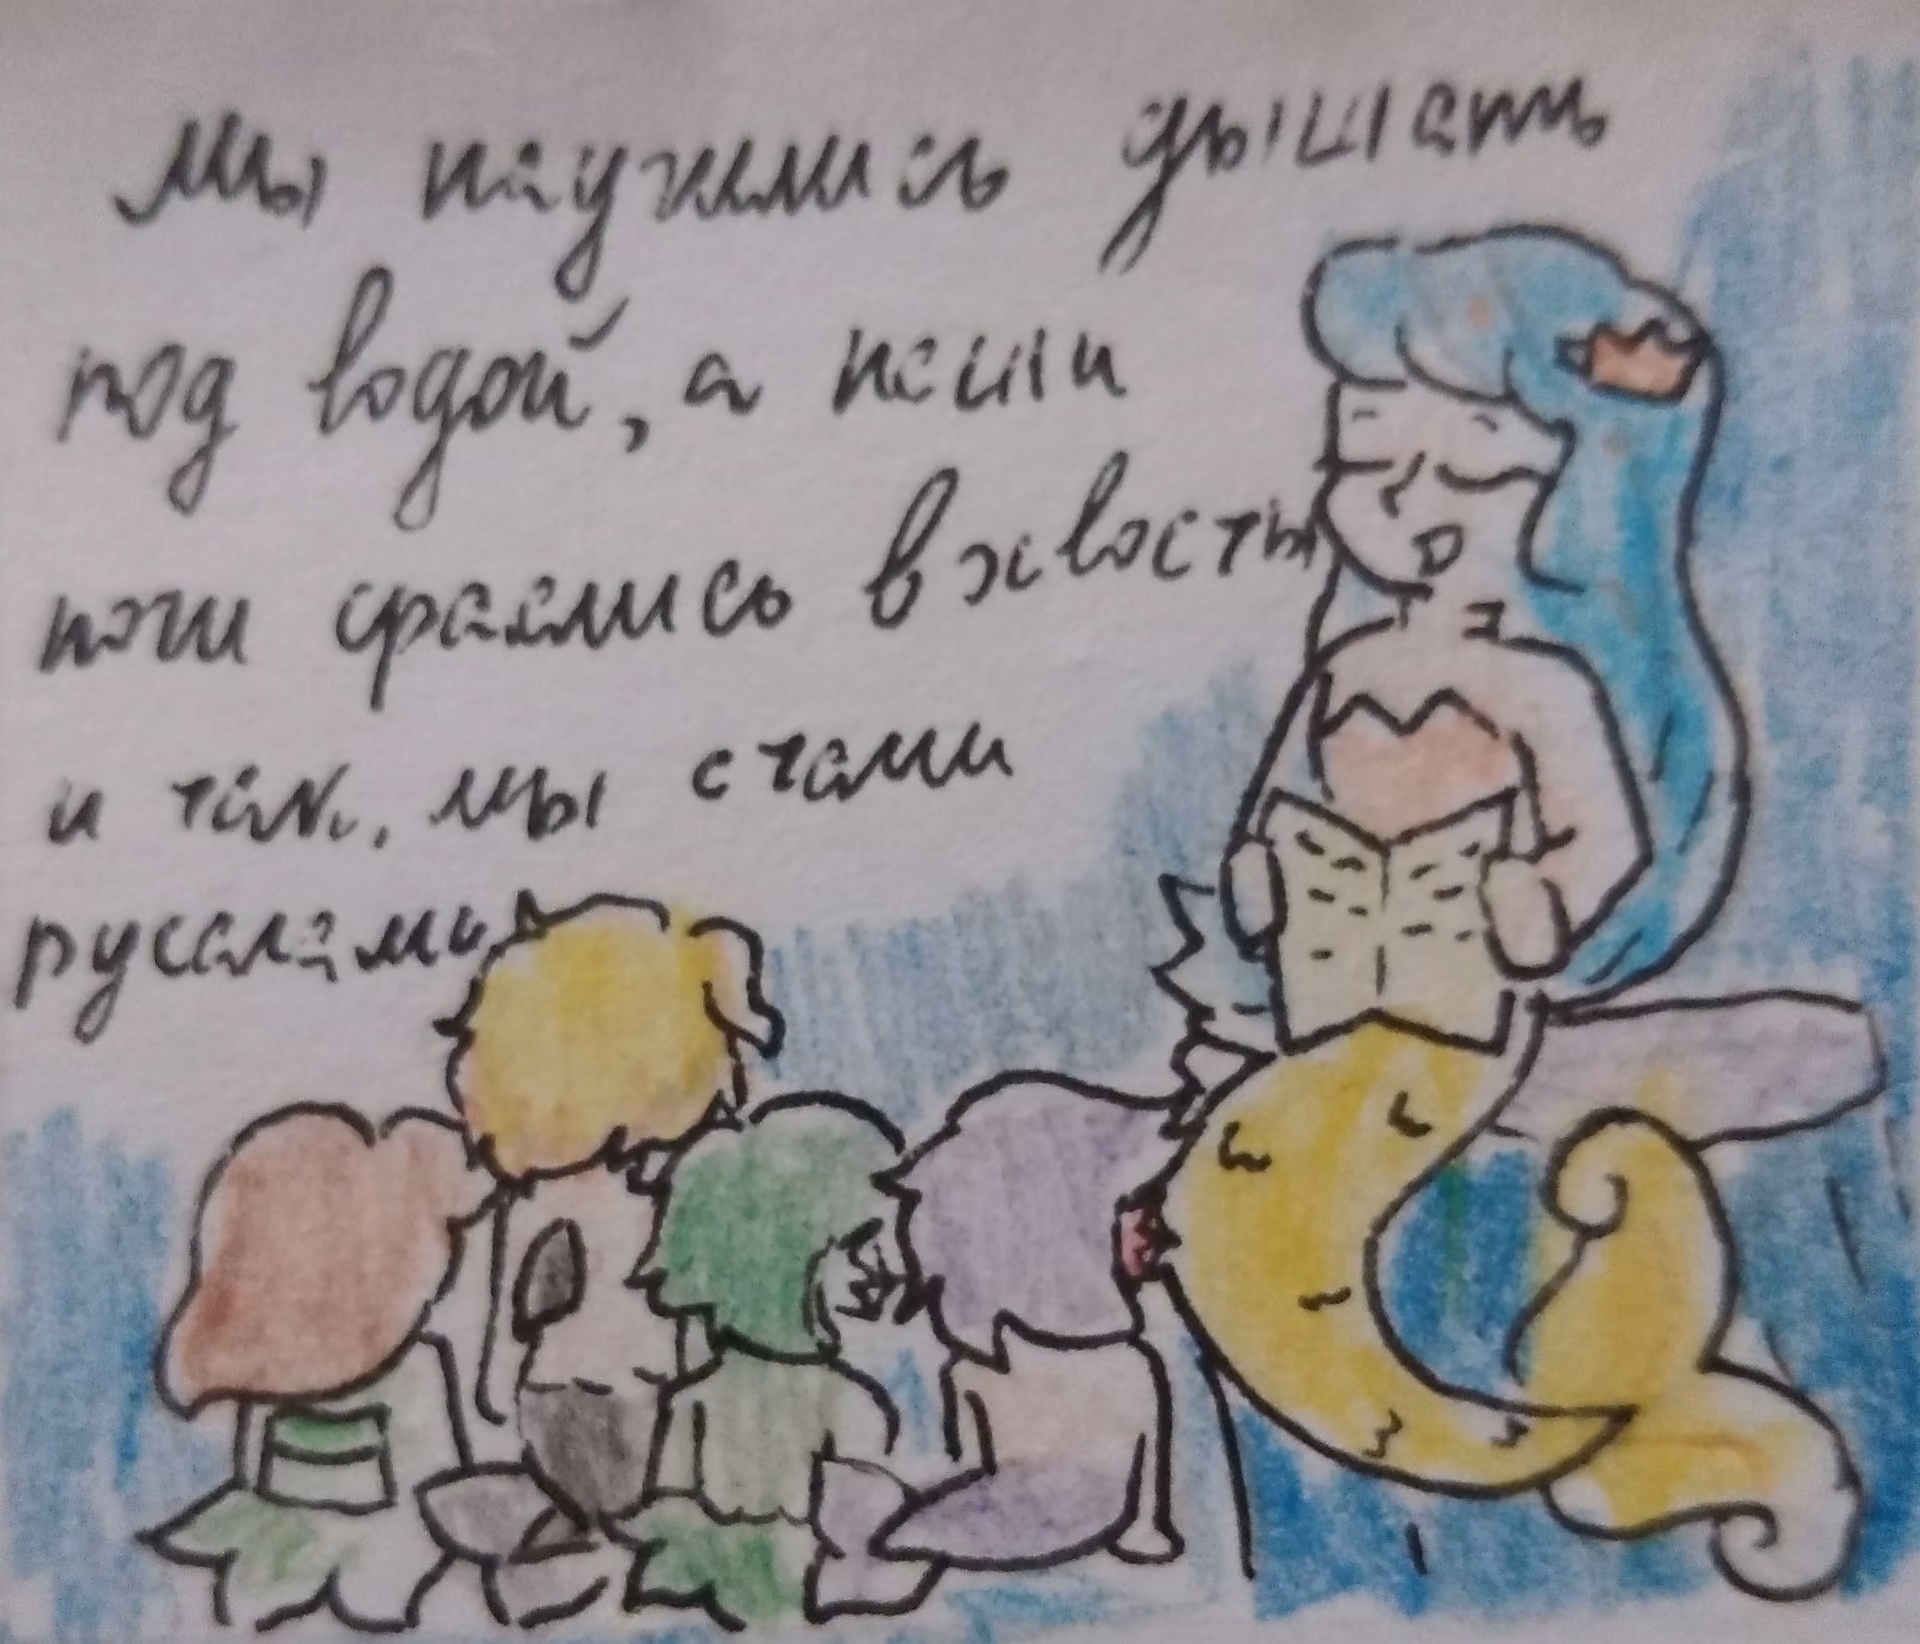 мы научились дышать
под водой, а наши
ноги срослись в хвосты
и так, мы стали
русалками